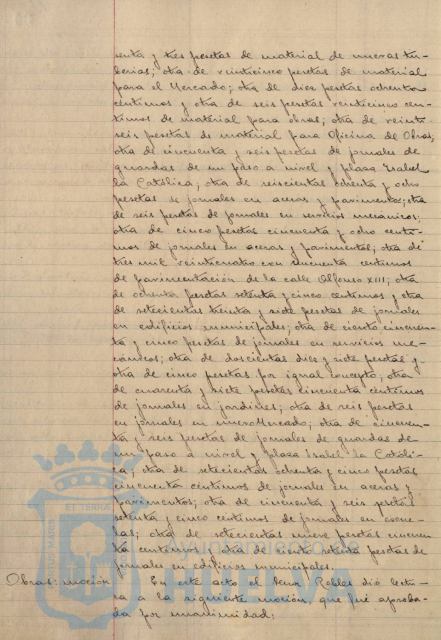 senta y tres pesetas de material de nuevas tu-
berias; otra de veinticinco pesetas de material
para el Mercado; otra de diez pesetas ochenta
centimos y otra de seis pesetas veinticinco cen-
timos de material para obras; otra de veinti
seis pesetas de material para Oficina de Obras;
otra de cincuenta y seis pesetas de jornales de
guardas de un paso a nivel y plaza Isabel
la Católica; otra de seiscientas ochenta y ocho
pesetas de jornales en aceras y pavimentos; otra
de seis pesetas de jornales en servicios mecanicos;
otra de cinco pesetas cincuenta y ocho centi-
mos de jornales en aceras y pavimentos; otra de
tres mil veinticuatro con cincuenta centimos
de pavimentación de la calle Alfonso XIII; otra
de ochenta pesetas setenta y cinco centimos y otra
de setecientas treinta y siete pesetas de jornales
en edificios municipales; otra de ciento cincuen-
ta y cinco pesetas de jornales en servicios me-
canicos; otra de doscientas diez y siete pesetas y
otra de cinco pesetas por igual concepto; otra
de cuarenta y siete pesetas cincuenta centimos
de jornales en jardines; otra de seis pesetas
en jornales en nuevo Mercado; otra de cincuen-
ta y seis pesetas de jornales de guardas de
un paso a nivel y plaza Isabel la Católi-
ca; otra de setecientas ochenta y cinco pesetas
cincuenta centimos de jornales en aceras y
pavimentos; otra de cincuenta y seis pesetas
setenta y cinco centimos de jornales en escue-
las; otra de setecientas nueve pesetas cincuen
ta centimos y otra de ciento setenta pesetas de
jornales en edificios municipales.
Obras: moción En este acto el Señor Robles dió lectu-
ra a la siguiente moción, que fué aproba-
da por unanimidad: